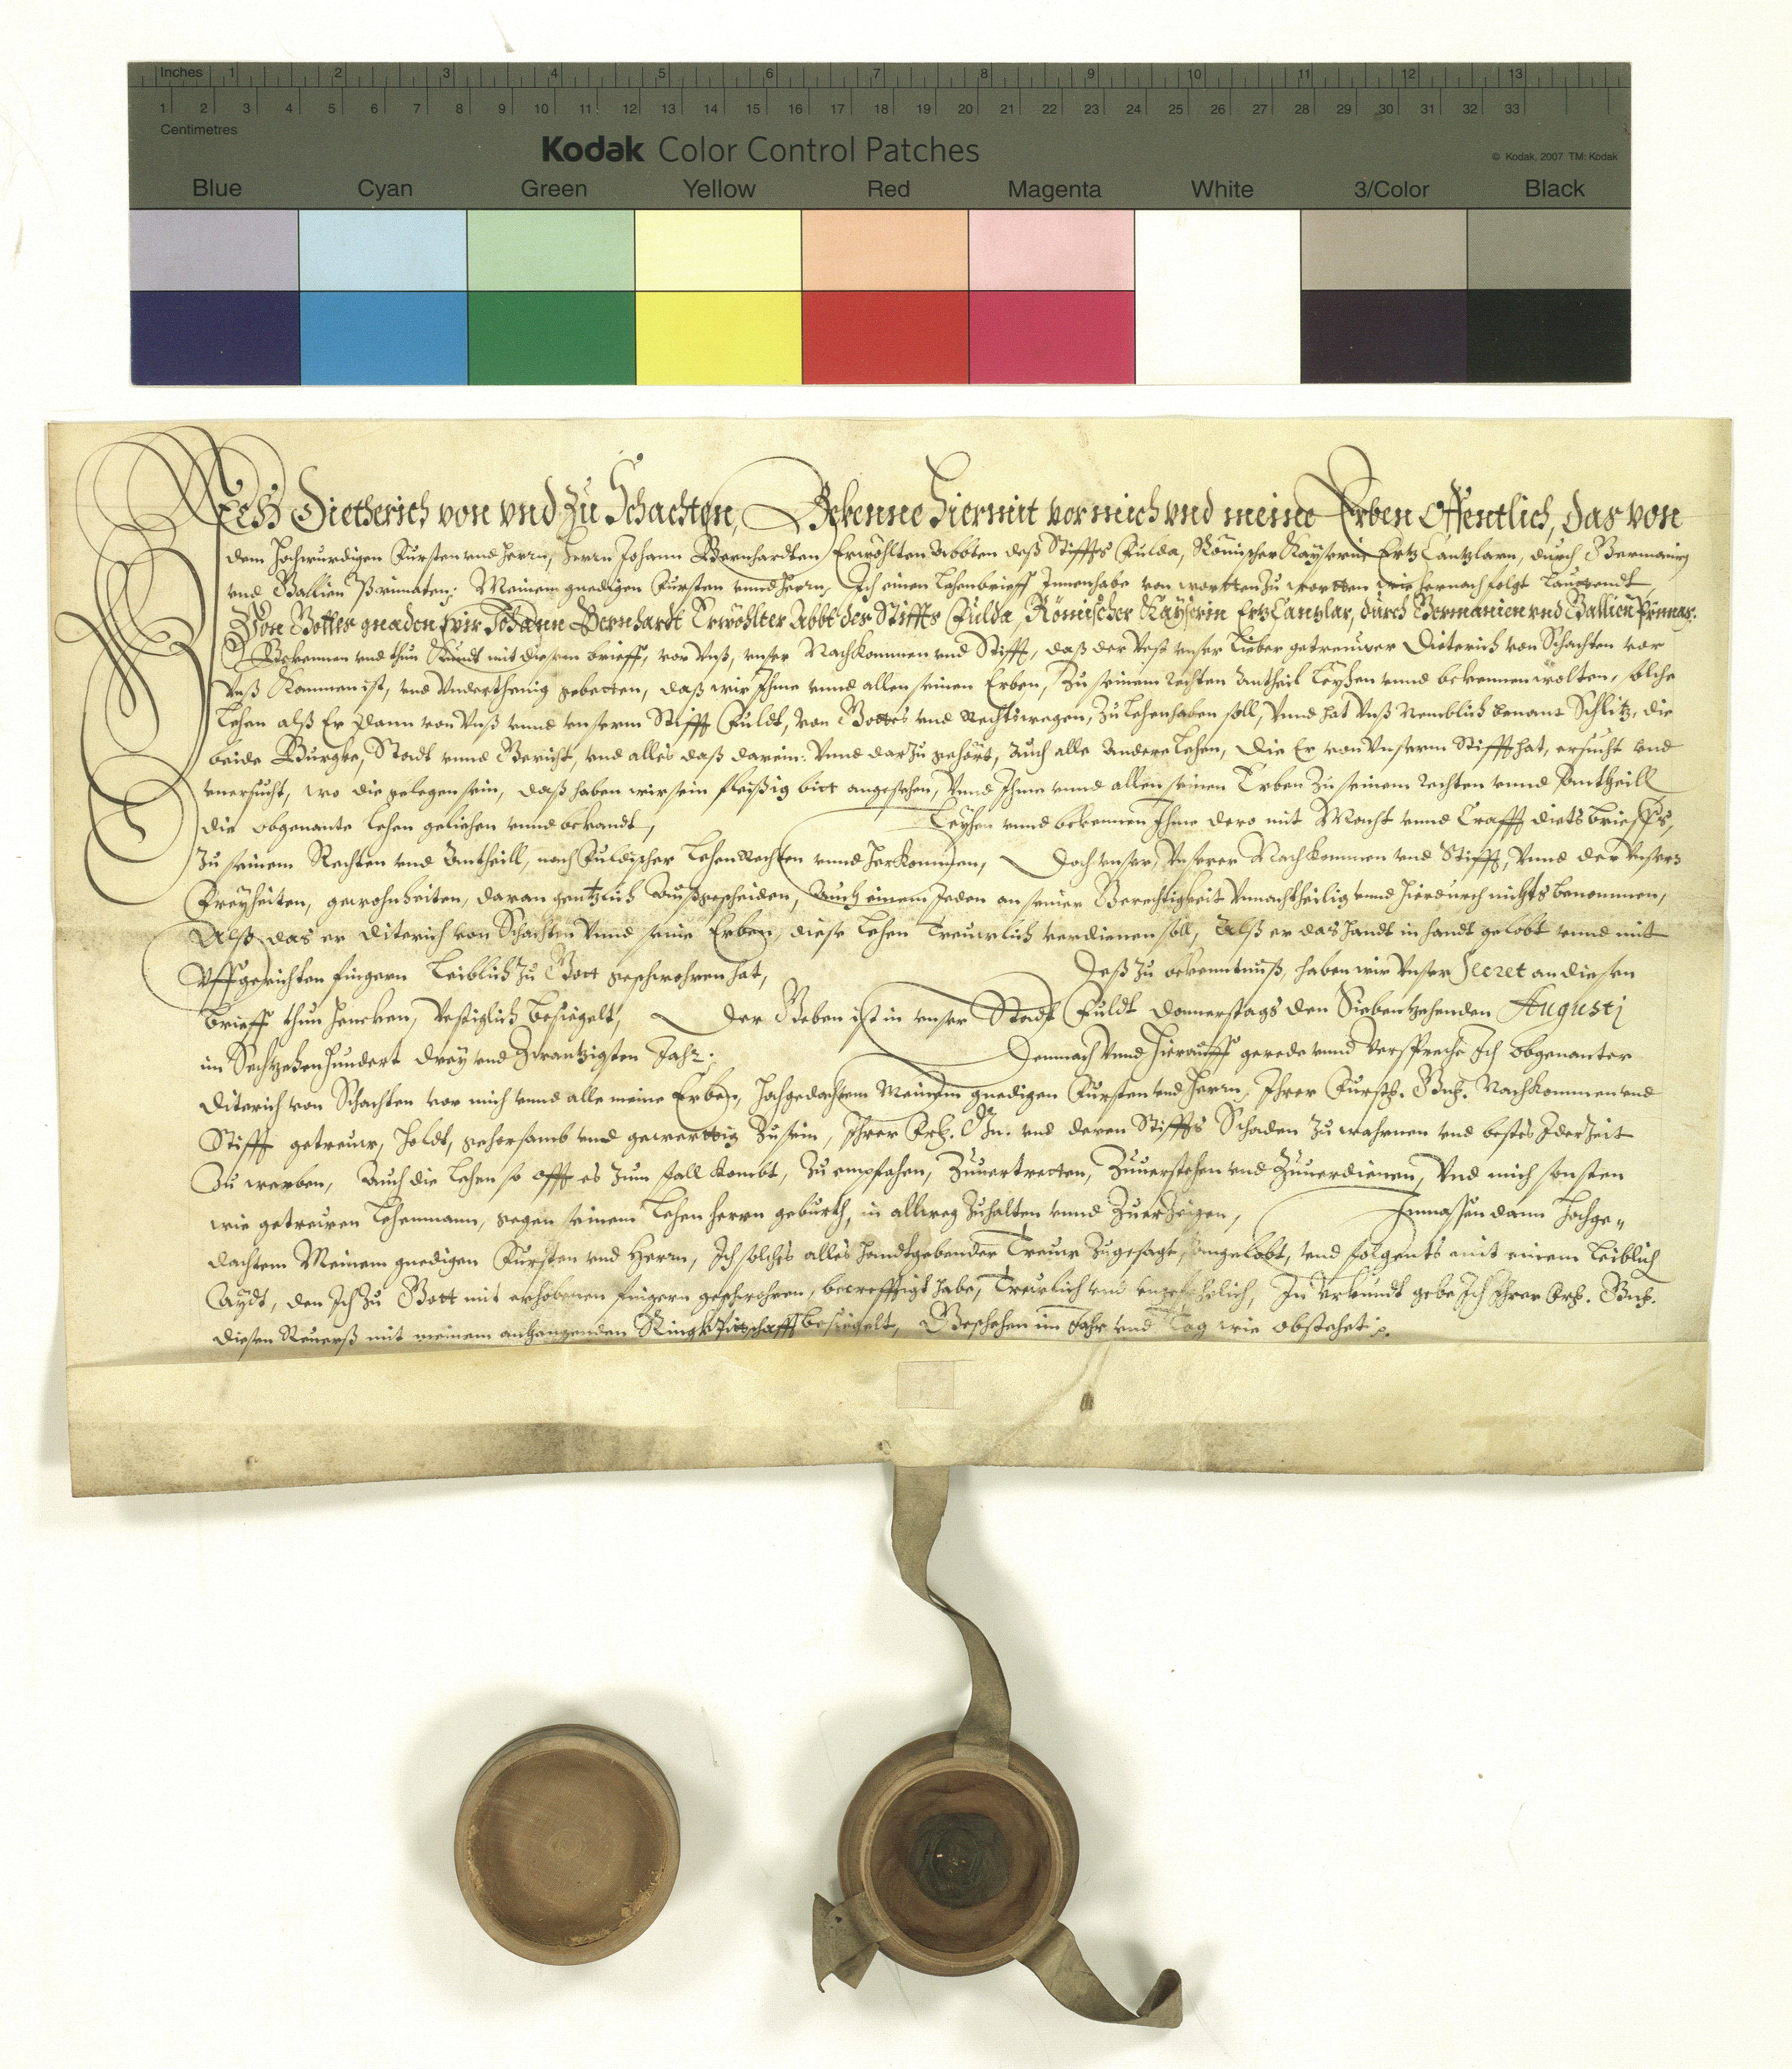 Inches 1 2 3 4 5 6 7 8 9 10 11 12 13
1 2 3 4 5 6 7 8 9 10 11 12 13 14 15 16 17 18 19 20 21 22 23 24 25 26 27 28 29 30 31 32 33
Centimetres
Kodak Color Control Patches
© Kodak, 2007 TM: Kodak
Blue Cyan Green Yellow Red Magenta White 3/Color Black
Ich Dietherich von vnd zu Schachten, Bekenne hiermit vor mich vnd meine Erben offentlich, das von
dem Hochwurdigen Fursten vnd Herrn, Herrn Johann Bernhardten Erwöhlten Abbten deß Stiffts Fulda, Römischer Kayserin Ertz Cantzlarn, durch Germanien
vnd Gallien Primaten, Meinem gnedigen Fursten vnnd Herrn, Ich einen Lehenbrieff Innenhabe von wortten zu wortten wie hernach folgt lauttendt
Von Gottes gnaden wir Johann Bernhardt Erwöhlter Abbt des Stiffts Fulda, Römischer Kayserin Ertz Cantzlar, durch Germanien vnd Gallien Primas.
Bekennen vnd thun Kundt mit diesem brieff, vor Vnß, vnser Nachkommen vnd Stifft, daß der Vest vnser Lieber getreuwer Dieterich von Schachten vor
Vnß Kommen ist, vnd Vnderthenig gebetten, daß wir Ihme vnnd allen seinen Erben, Zu seinem rechten Antheil Leyhen vnnd bekennen wolten, solche
Lehen alß Er dann von Vnß vnnd vnserm Stifft Fuldt, von Gottes vnd Rechts wegen, zu Lehen haben soll, Vnnd hat Vnß Nemblich benant Schlitz, die
beide Burgke, Stadt vnnd Gericht, vnd alles daß darein: Vnnd darzu gehört, Auch alle andere Lehen, die Er von Vnserm Stifft hat, ersucht vnd
vnersucht, wo die gelegen sein, daß haben wir sein fleißig bitt angesehen, Vnnd Ihme vnnd allen seinen Erben zu seinem rechten vnnd Anttheill
die obgenante Lehen geliehen vnnd bekandt, Leyhen vnnd bekennen Ihme dero mit Macht vnnd Crafft diets brieffs,
Zu seinem Rechten vnd Antheill, nach Fuldischer Lehen Rechten vnnd Herkommen, Doch vnser, Vnserer Nachkommen vnd Stifft, Vnnd der Vnsers
Freyheiten, gewohnheiten, daran gentzlich Außgescheiden, Auch einem Jeden an seiner Gerechtigkeit Vnnachtheilig vnnd hierdurch nichts benommen,
Alß das er Diterich von Schachten Vnnd seine Erben, diese Lehen Treuwlich verdienen soll, Alß er das Handt in handt gelobt vnnd mit
Vffgerichten fingern Leiblich zu Gott geschwohren hat, Deß zu bekenntnuß, haben wir Vnser Secret an diesen
Brieff thun Hencken, Vestiglich Besiegelt, Der Geben ist in vnser Stadt Fuldt Donnerstags den Siebentzehenden Augusti
im Sechzehenhundert drey vnd Zwantzigsten Jahr. Demnach Vnnd hierauff gerede vnnd Verspreche Ich obgenanter
Diterich von Schachten vor mich vnnd alle meine Erben, Hochgedachtem Meinem gnedigen Fursten vnd Herrn, Ihrer Furstl. Gnd. Nachkommen vnd
Stifft getreuw, Holdt, gehorsamb vnd gewerttig zu sein, Ihrer Frl. Gn. vnd deren Stiffts Schaden zu wahrnen vnd bestes Jderzeit
Zu werben, Auch die Lehen so offt es zum fall kombt, zu empfahen, Zuuertretten, Zuuerstehen vnd Zuuerdienen, Vnd mich sonsten
wie getreuen Lehenmann, gegen seinem Lehen herrn geburth, in allweg zuhalten vnnd Zuerzeigen, Inmassen dann Hochge-
dachtem Meinem gnedigen Fursten vnd Herrn, Ich solches alles Handtgebender Treuw zugesagt, angelobt, vnd folgents mit einem Leiblich
Aydt, den Ich zu Gott mit erhobenen fingern geschwohren, becrefftigt habe, Treulich vnd vngefehrlich, Zu Vrkundt gebe Ich Ihrer Frl. Gnd.
diesen Reuerß mit meinem anhangenden Ringk Pittschafft besiegelt, Geschehen im Jahr vnd Tag wie obstehet.